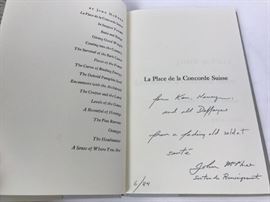 BY JOHN McPHEE
La Place de la Concorde Suisse
In Suspect Terrain
Basin and Range
Giving Good Weight
Coming into the Country
The Survival of the Bark Canoe
Pieces of the Frame
The Curve of Binding Energy
The Deltoid Pumpkin Seed
Encounters with the Archdruid
The Crofter and the Laird
Levels of the Game
A Roomful of Hovings
The Pine Barrens
Oranges
The Headmasters
A Sense of Where You Are
La Place de la Concorde Suisse
for Ken,
and old
from a fading old soldat
santé
John McPhee
6/84